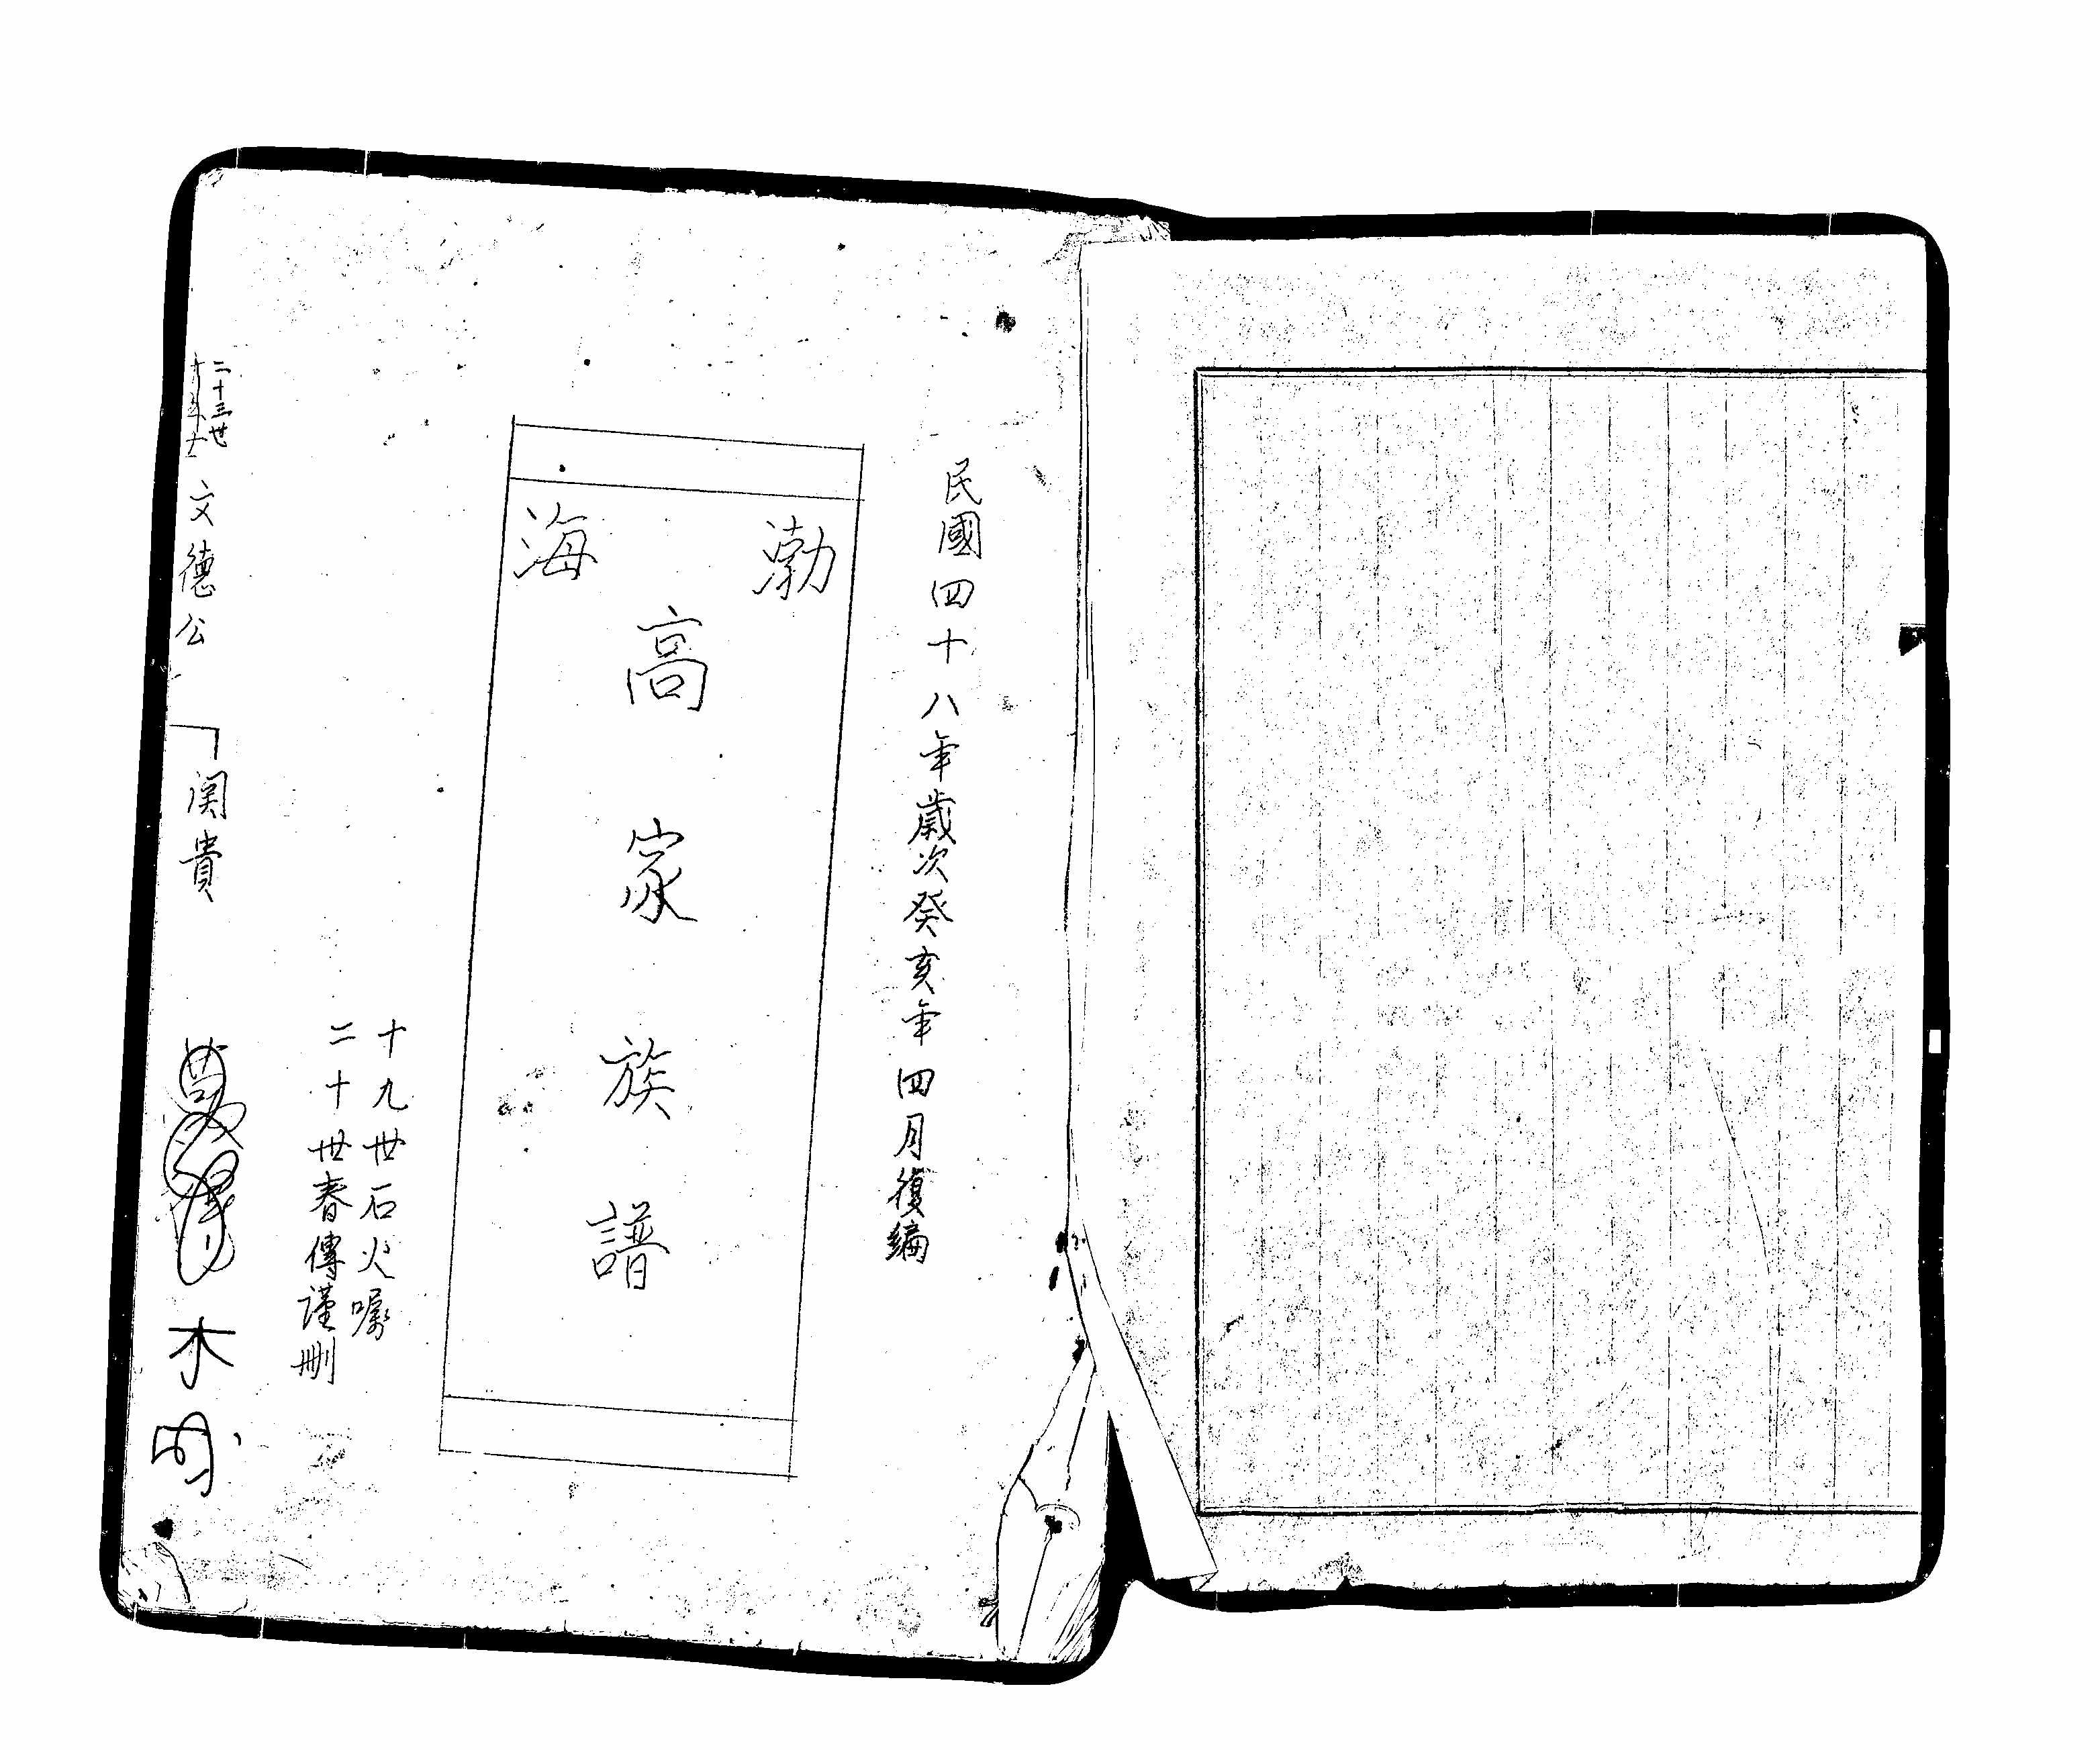 民國四十八年歲次癸亥年四月復編
渤海
高家族譜
十九世石火囑
二十世春傳謹刪
二十三世
文德公
貴
木